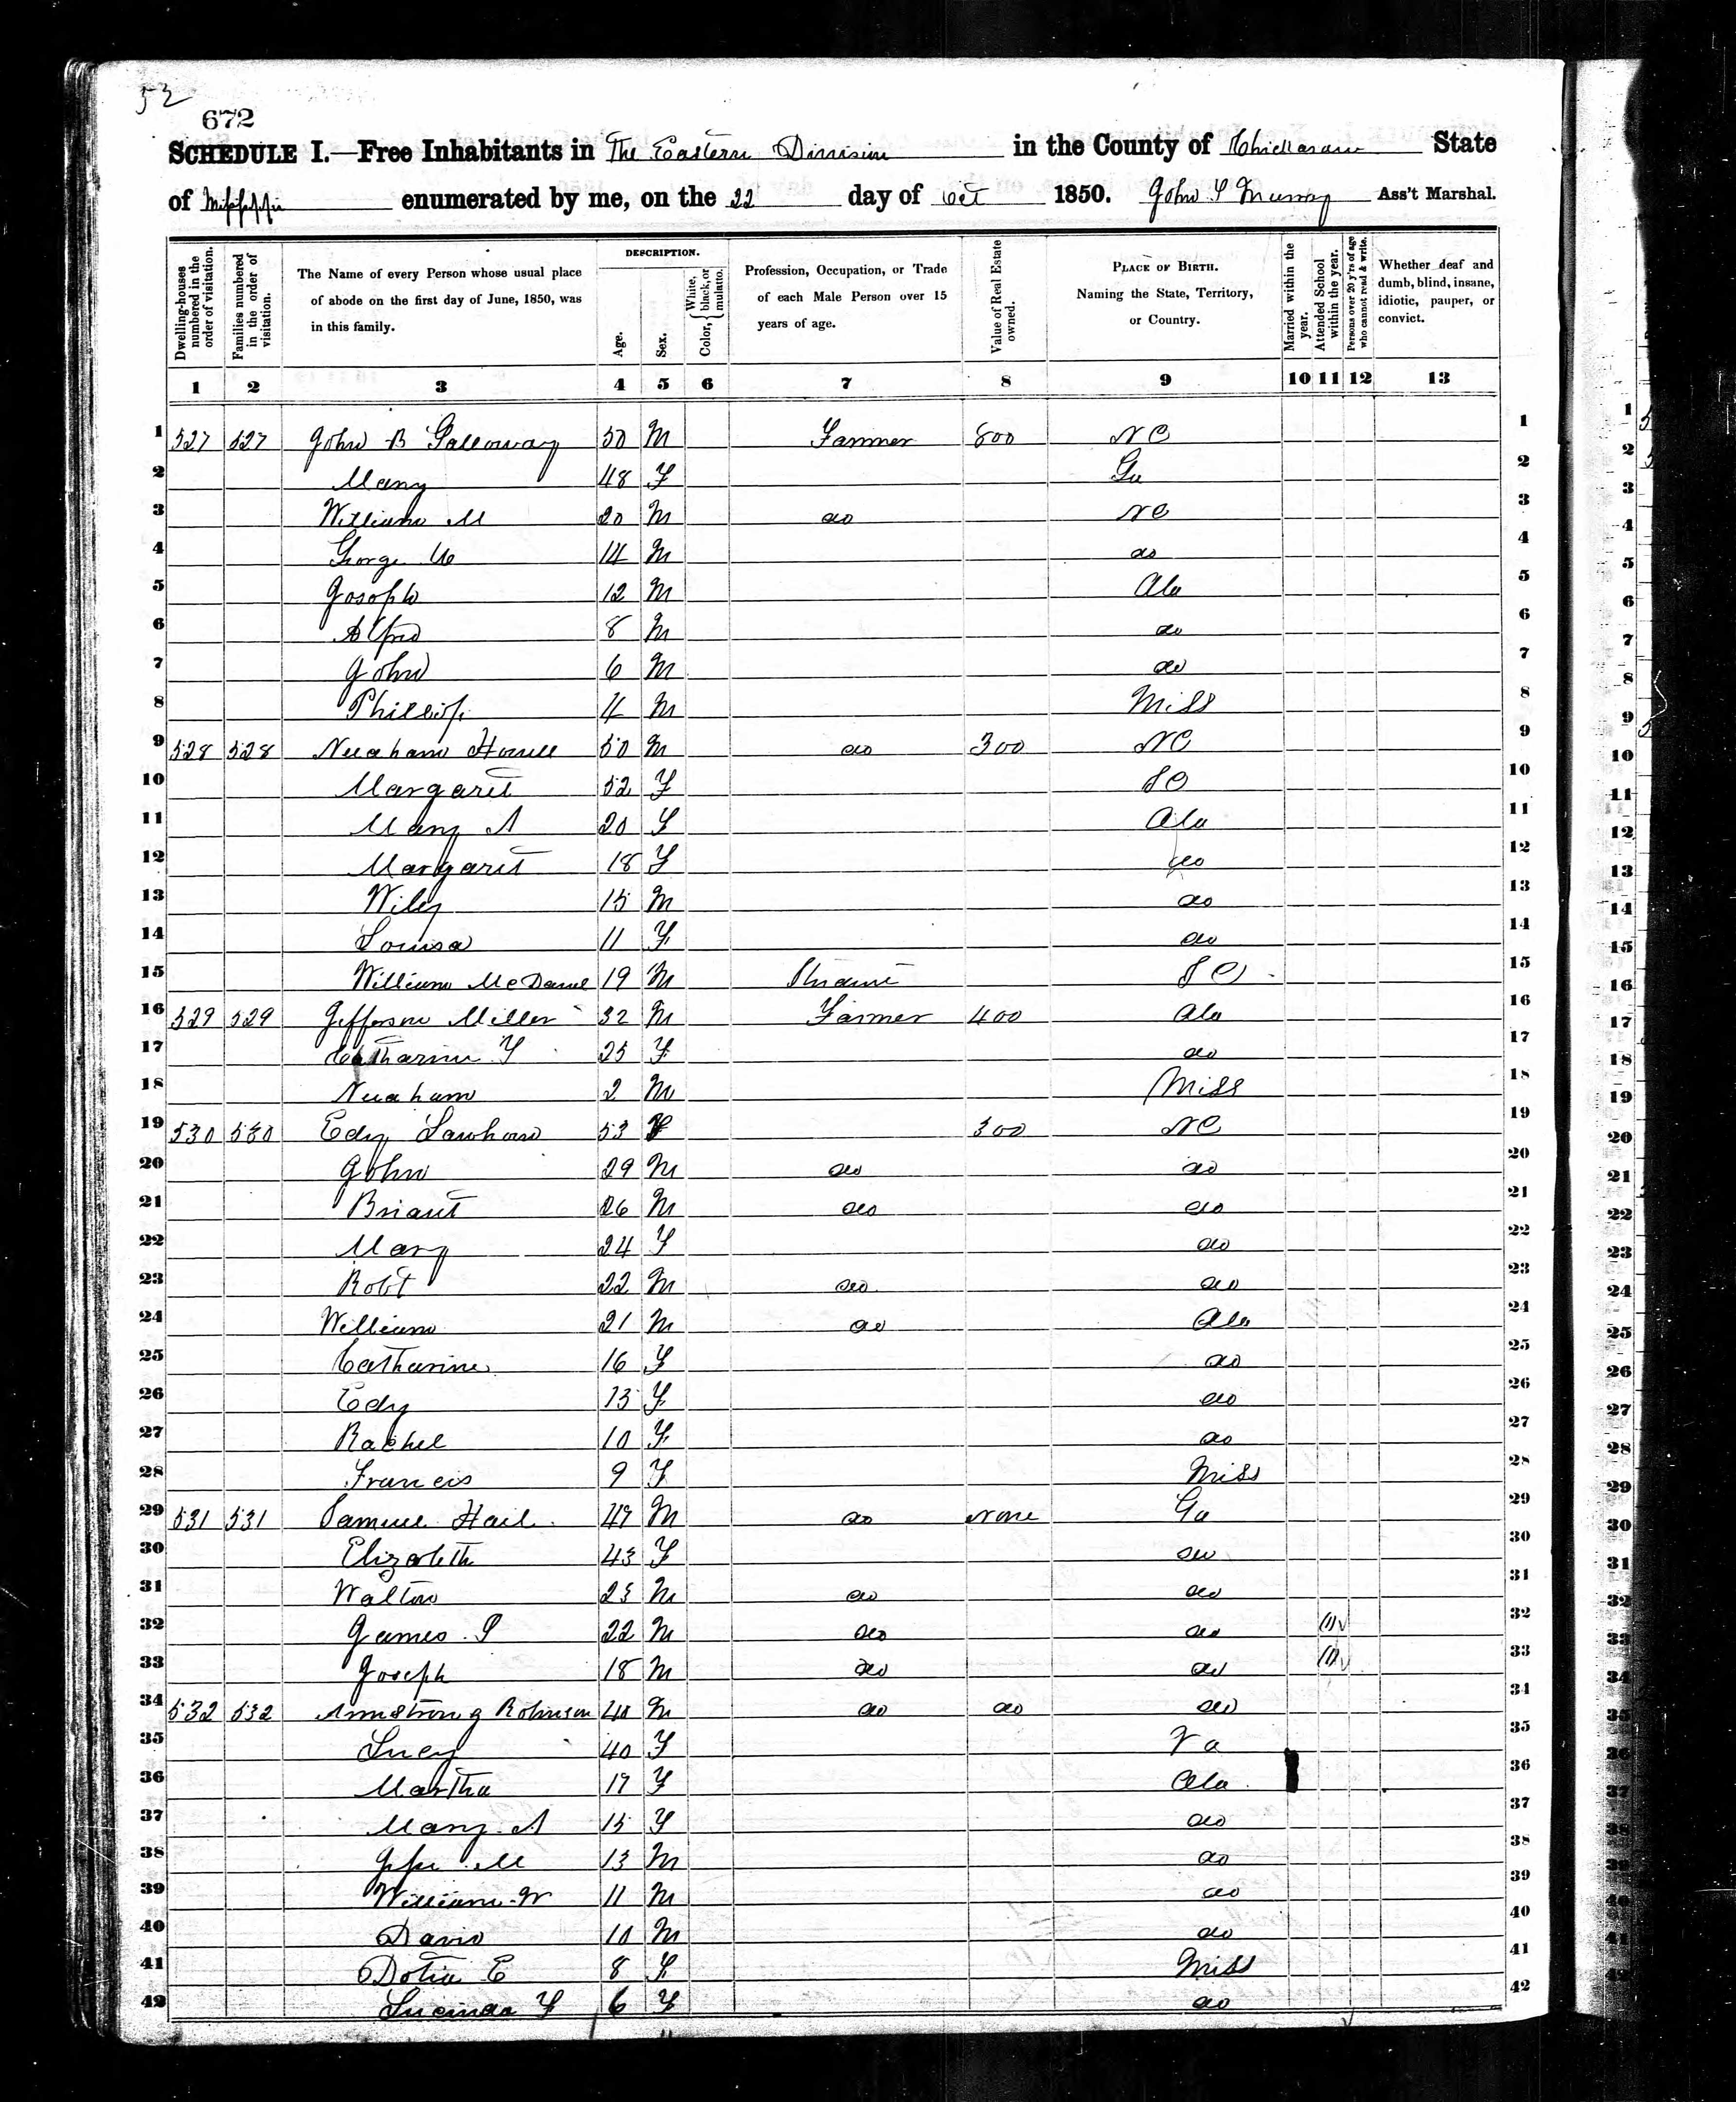 52
672
SCHEDULE I.—Free Inhabitants in The Eastern Division in the County of Chickasaw State
of Mississippi enumerated by me, on the 22 day of Oct 1850. John S Murray Ass't Marshal.
Dwelling-houses numbered in the order of visitation.
Families numbered in the order of visitation.
The Name of every Person whose usual place of abode on the first day of June, 1850, was in this family.
DESCRIPTION.
Age.
Sex.
Color, { White, black, or mulatto.
Profession, Occupation, or Trade of each Male Person over 15 years of age.
Value of Real Estate owned.
PLACE OF BIRTH. Naming the State, Territory, or Country.
Married within the year.
Attended School within the year.
Persons over 20 y'rs of age who cannot read & write.
Whether deaf and dumb, blind, insane, idiotic, pauper, or convict.
1 2 3 4 5 6 7 8 9 10 11 12 13
1 527 527 John B Galloway 50 M Farmer 800 NC 1
2 Mary 48 F Ga 2
3 William M 20 M do NC 3
4 George 14 M do 4
5 Joseph 12 M Ala 5
6 Alfred 8 M do 6
7 John 6 M do 7
8 Phillip 4 M Miss 8
9 528 528 Needham Howell 50 M do 300 NC 9
10 Margaret 52 F SC 10
11 Mary A 20 F Ala 11
12 Margaret 18 F do 12
13 Wiley 15 M do 13
14 Louisa 11 F do 14
15 William McDaniel 19 M Student SC 15
16 529 529 Jefferson Miller 32 M Farmer 400 Ala 16
17 Catharine F 25 F do 17
18 Needham 2 M Miss 18
19 530 530 Edy Lawhon 53 F 300 NC 19
20 John 29 M do do 20
21 Briant 26 M do do 21
22 Mary 24 F do 22
23 Robt 22 M do do 23
24 William 21 M do Ala 24
25 Catharine 16 F do 25
26 Edy 13 F do 26
27 Rachel 10 F do 27
28 Francis 9 F Miss 28
29 531 531 Samuel Hail 49 M do None Ga 29
30 Elizabeth 43 F do 30
31 Walton 23 M do do 31
32 James P 22 M do do 32
33 Joseph 18 M do do 33
34 532 532 Armstrong Robinson 40 M do do do 34
35 Lucy 40 F Va 35
36 Martha 17 F Ala 36
37 Mary A 15 F do 37
38 M 13 M do 38
39 William W 11 M do 39
40 David 10 M do 40
41 E 8 F Miss 41
42 Lucinda F 6 F do 42